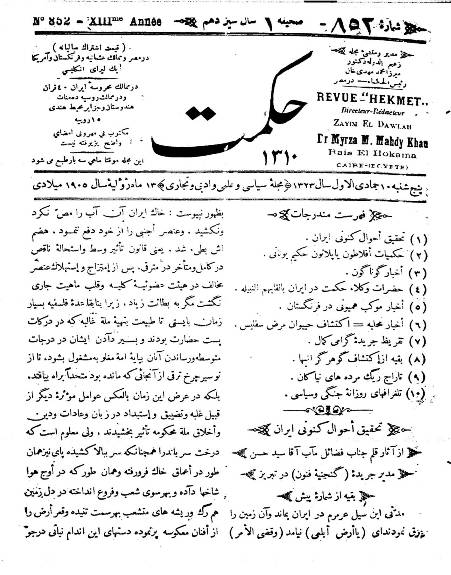 Nº 852 - XIIIme Année
صحیفه ۱ سال سیزدهم
شمارهٔ ۸۵۲
( قیمت اشتراک سالیانه )
درمصر وممالک عثمانیه وفرنگستان وآمریکا
یک لیرای انگلیسی
درممالک محروسه ایران ۴۰ قران
ودرممالک روسیه ده منات
هندوستان وجزایر محیط هندی
۱۵ روپیه
مکتوب بی مهر وبی امضای
واضح پذیرفته نیست
این مجله موقتا ماهی سه بار طبع می شود
حکمت
۱۳۱۰
مدیر ومنشئ مجله
زعیم الدوله دکتور
میرزا محمد مهدی خان
رئیس الحکماء - در مصر
REVUE "HEKMET"
Directeur-Rédacteur
ZAYIM EL DAWLAH
Dr Myrza M. Mahdy Khan
Raïs El Hokama
CAIRE (EGYPTE)
پنج شنبه ۱۰ جمادی الاول سال ۱۳۲۳ ﴿ مجلهٔ سیاسی وعلمی وادبی وتجاری ﴾ ۱۳ ماه ژوئیهٔ سال ۱۹۰۵ میلادی
فهرست مندرجات
(۱) تحقیق أحوال کنونی ایران .
(۲) حکمیات أفلاطون یاپلاتون حکیم یونانی .
(۳) أخبار گوناگون .
(٤) حضرات وکلاء حکمت در ایران بالقابهم النبیله .
(٥) أخبار موکب همیونی در فرنگستان .
(٦) أخبار محلیه = اکتشاف حیوان مرض سفلیس .
(۷) تقریظ جریدهٔ گرامی کمال .
(۸) بقیه از اکتشاف گوهر گرانبها .
(۹) تاراج ریگ مرده های نیاکان .
(۱۰) تلغرافهای روزانهٔ جنگی وسیاسی .
تحقیق أحوال کنونی ایران
از آثار قلم جناب فضائل مآب آقا سید حسن
مدیر جریدهٔ ( گنجینهٔ فنون ) در تبریز
بقیه از شمارهٔ پیش
مدتی این سیل عرمرم در ایران بماند وآن زمین را
غرق نمود ندای (یاأرض أبلعی) نیامد (وقضی الأمر)
بظهور نپیوست : خاک ایران این آب را مص نکرد
ونکشید . وعنصر أجنبی را از خود دفع ننمود . هضم
اش بطی . شد . یعنی قانون تأثیر وسط واستحالهٔ ناقص
درکامل ومتأخر در مترقی . پس از امتزاج واستهلاک عنصر
مخالف در هیئت عضویهٔ کلیه وقلب ماهیت جاری
نگشت مگر به بطائت زیاد . زیرا بنابقاعدهٔ فلسفیه بسیار
زمان بایستی تا طبیعت بنیهٔ ملهٔ غالبه که در درکات
پست حضارت بودند و بسیر دآدن ایشان در درجات
متوسطه ورساندن آنان بپایهٔ امهٔ مغلوبه مشغول بشود تا از
نو سیر چرخ ترقی از آنجائی که مانده بود متحدا براه بیافتد.
بلکه در عرض این زمان بالعکس عوامل مؤثرهٔ دیگر از
قبیل غلبه وتضییق و استبداد در زبان وعادات ودین
وأخلاق ملهٔ محکومه تأثیر بخشیدند . ولی معلوم است که
درخت سرباندرا همچنانکه سر ببالا کشیده بپای نیزهمان
طور در أعماق خاک فرورفته وهمان طور که در أوج هوا
شاخها دآده و بهر سوی شعب وفروع انداخته در دل زمین
هم رگ وریشه های منشعب بهر سمت تنیده وقعر أرض را
از أفنان معکوسه پر نموده دستهای این اندام نباتی درجو